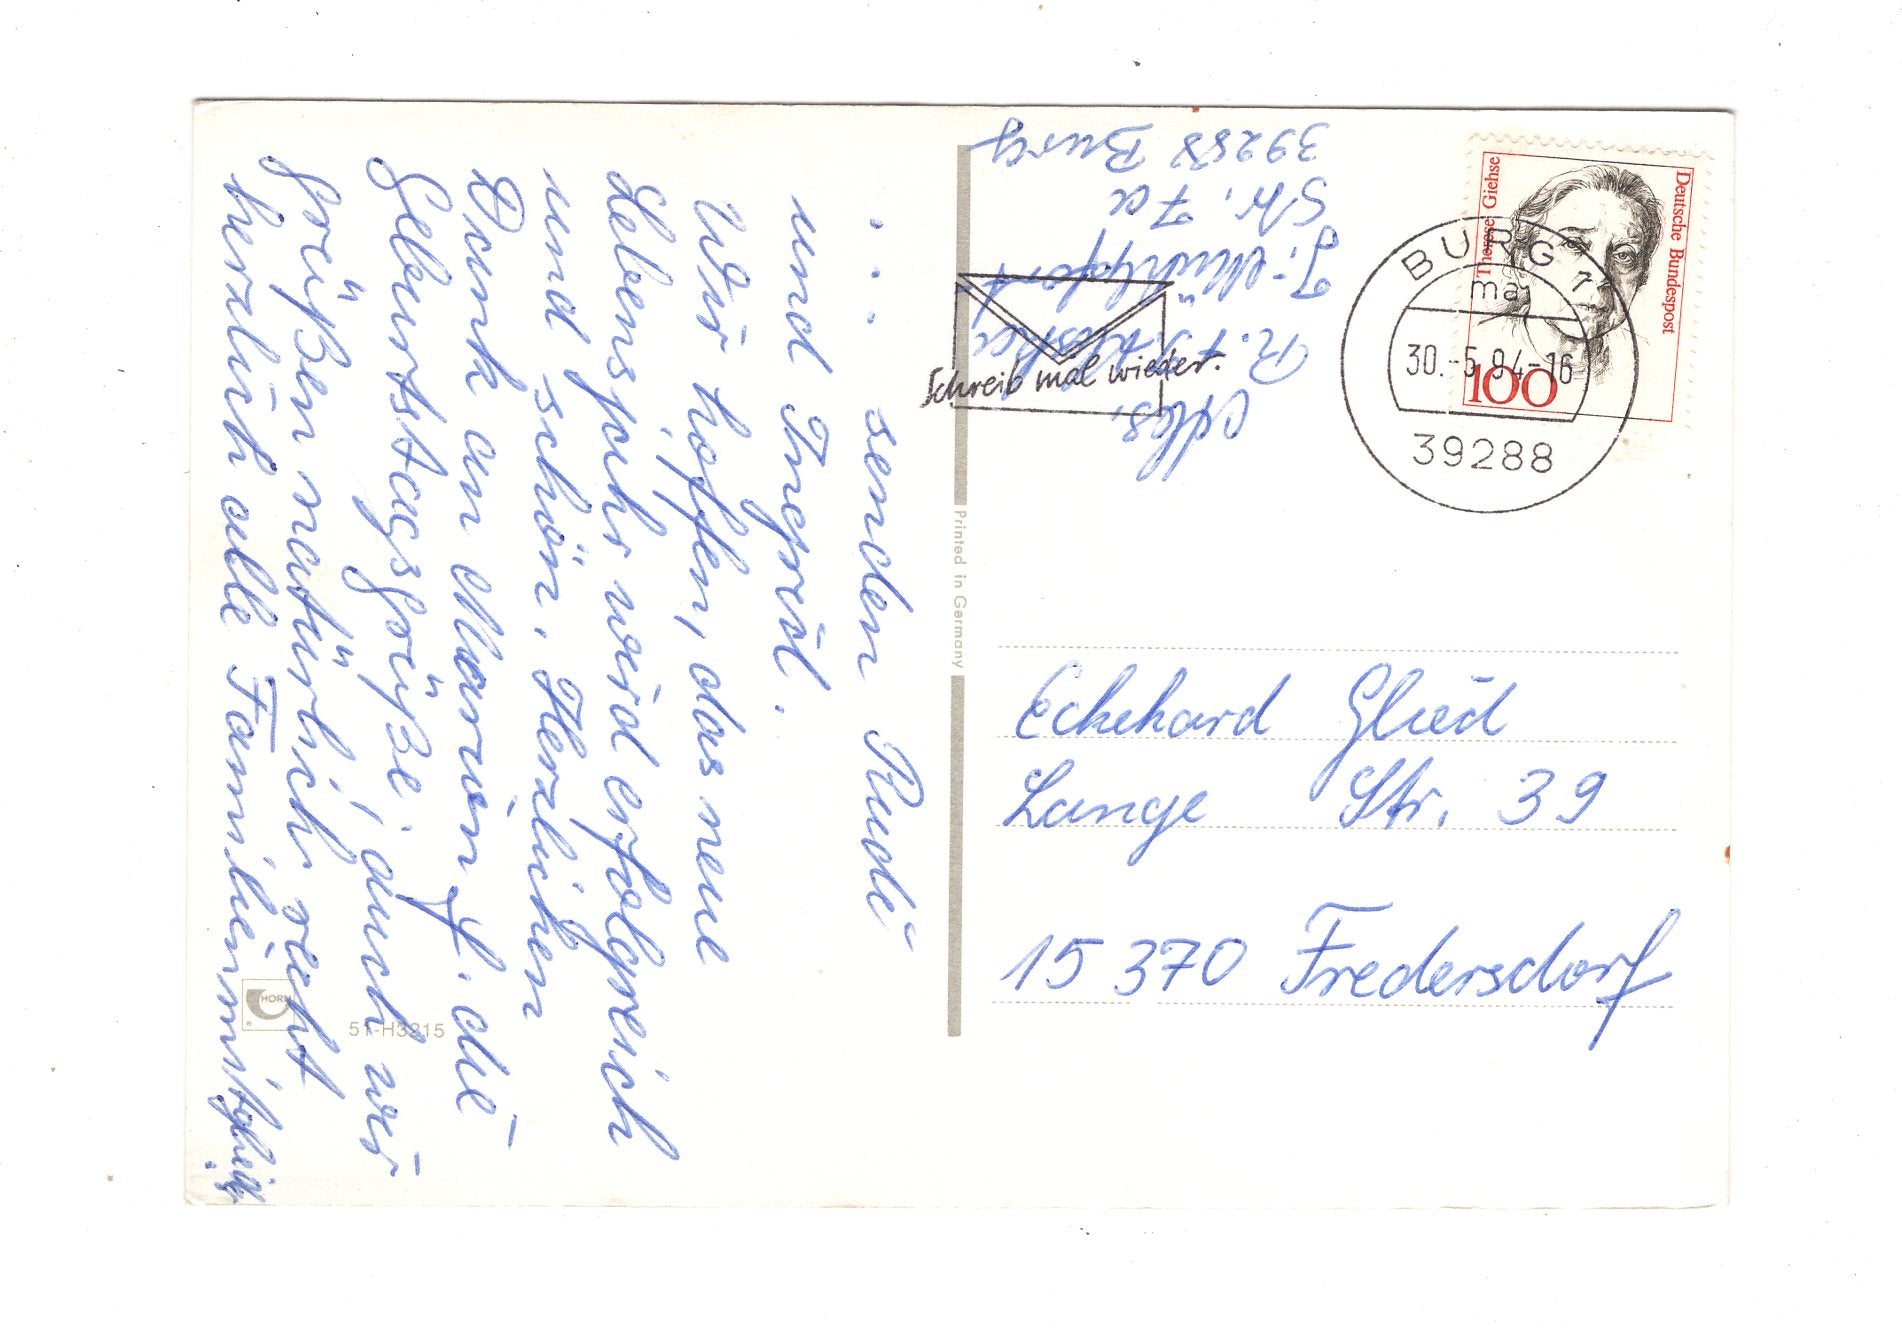 ... senden Rudi
und Ingrid.
Wir hoffen, das neue
Lebensjahr wird erfolgreich
und schön. Herzlichen
Dank an Marion f. die
Geburtstagsgrüße; auch wir
grüßen natürlich recht
herzlich alle Familienmitglieder.
HORN
51-H3215
Printed in Germany
Abs.
R.
J.-
Str. 7a
39288 Burg
Schreib mal wieder.
BURG 1
maj
30.-5.94-16
39288
Deutsche Bundespost
Therese Giehse
100
Eckehard Glied
Lange Str. 39
15370 Fredersdorf